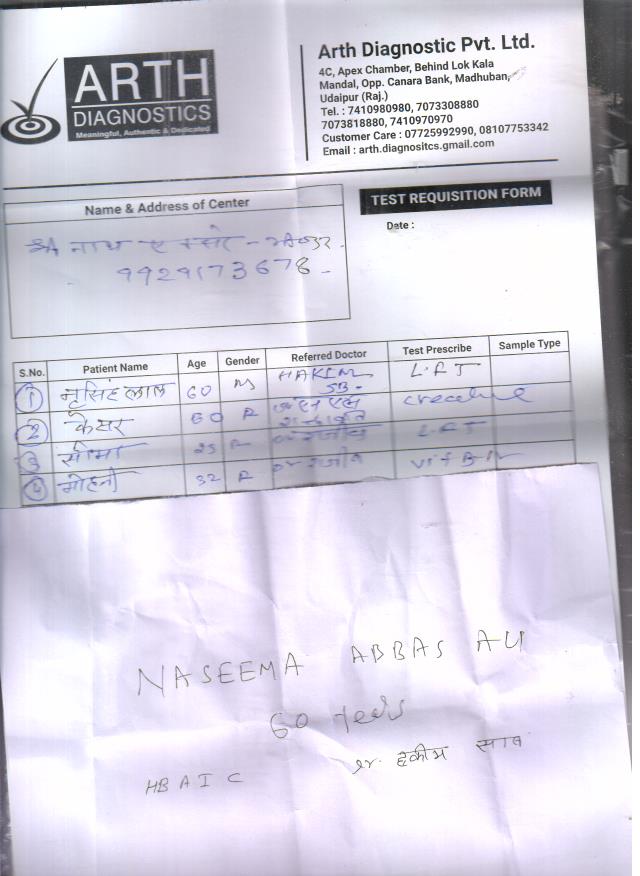 ARTH
DIAGNOSTICS
Meaningful, Authentic & Dedicated
Arth Diagnostic Pvt. Ltd.
4C, Apex Chamber, Behind Lok Kala
Mandal, Opp. Canara Bank, Madhuban,
Udaipur (Raj.)
Tel. : 7410980980, 7073308880
7073818880, 7410970970
Customer Care : 07725992990, 08107753342
Email : arth.diagnositcs.gmail.com
TEST REQUISITION FORM
Date :
Name & Address of Center
नाथ
9929173678
S.No. Patient Name Age Gender Referred Doctor Test Prescribe Sample Type
1 नृसिंह लाल 60 M HAKIM SB. L.F.T
2 केसर 60 F
3 सीमा 25 F L.F.T
4 मोहनी 32 F Vit B12
NASEEMA ABBAS ALI
60 years
Dr. हकीम साब
HBA1C